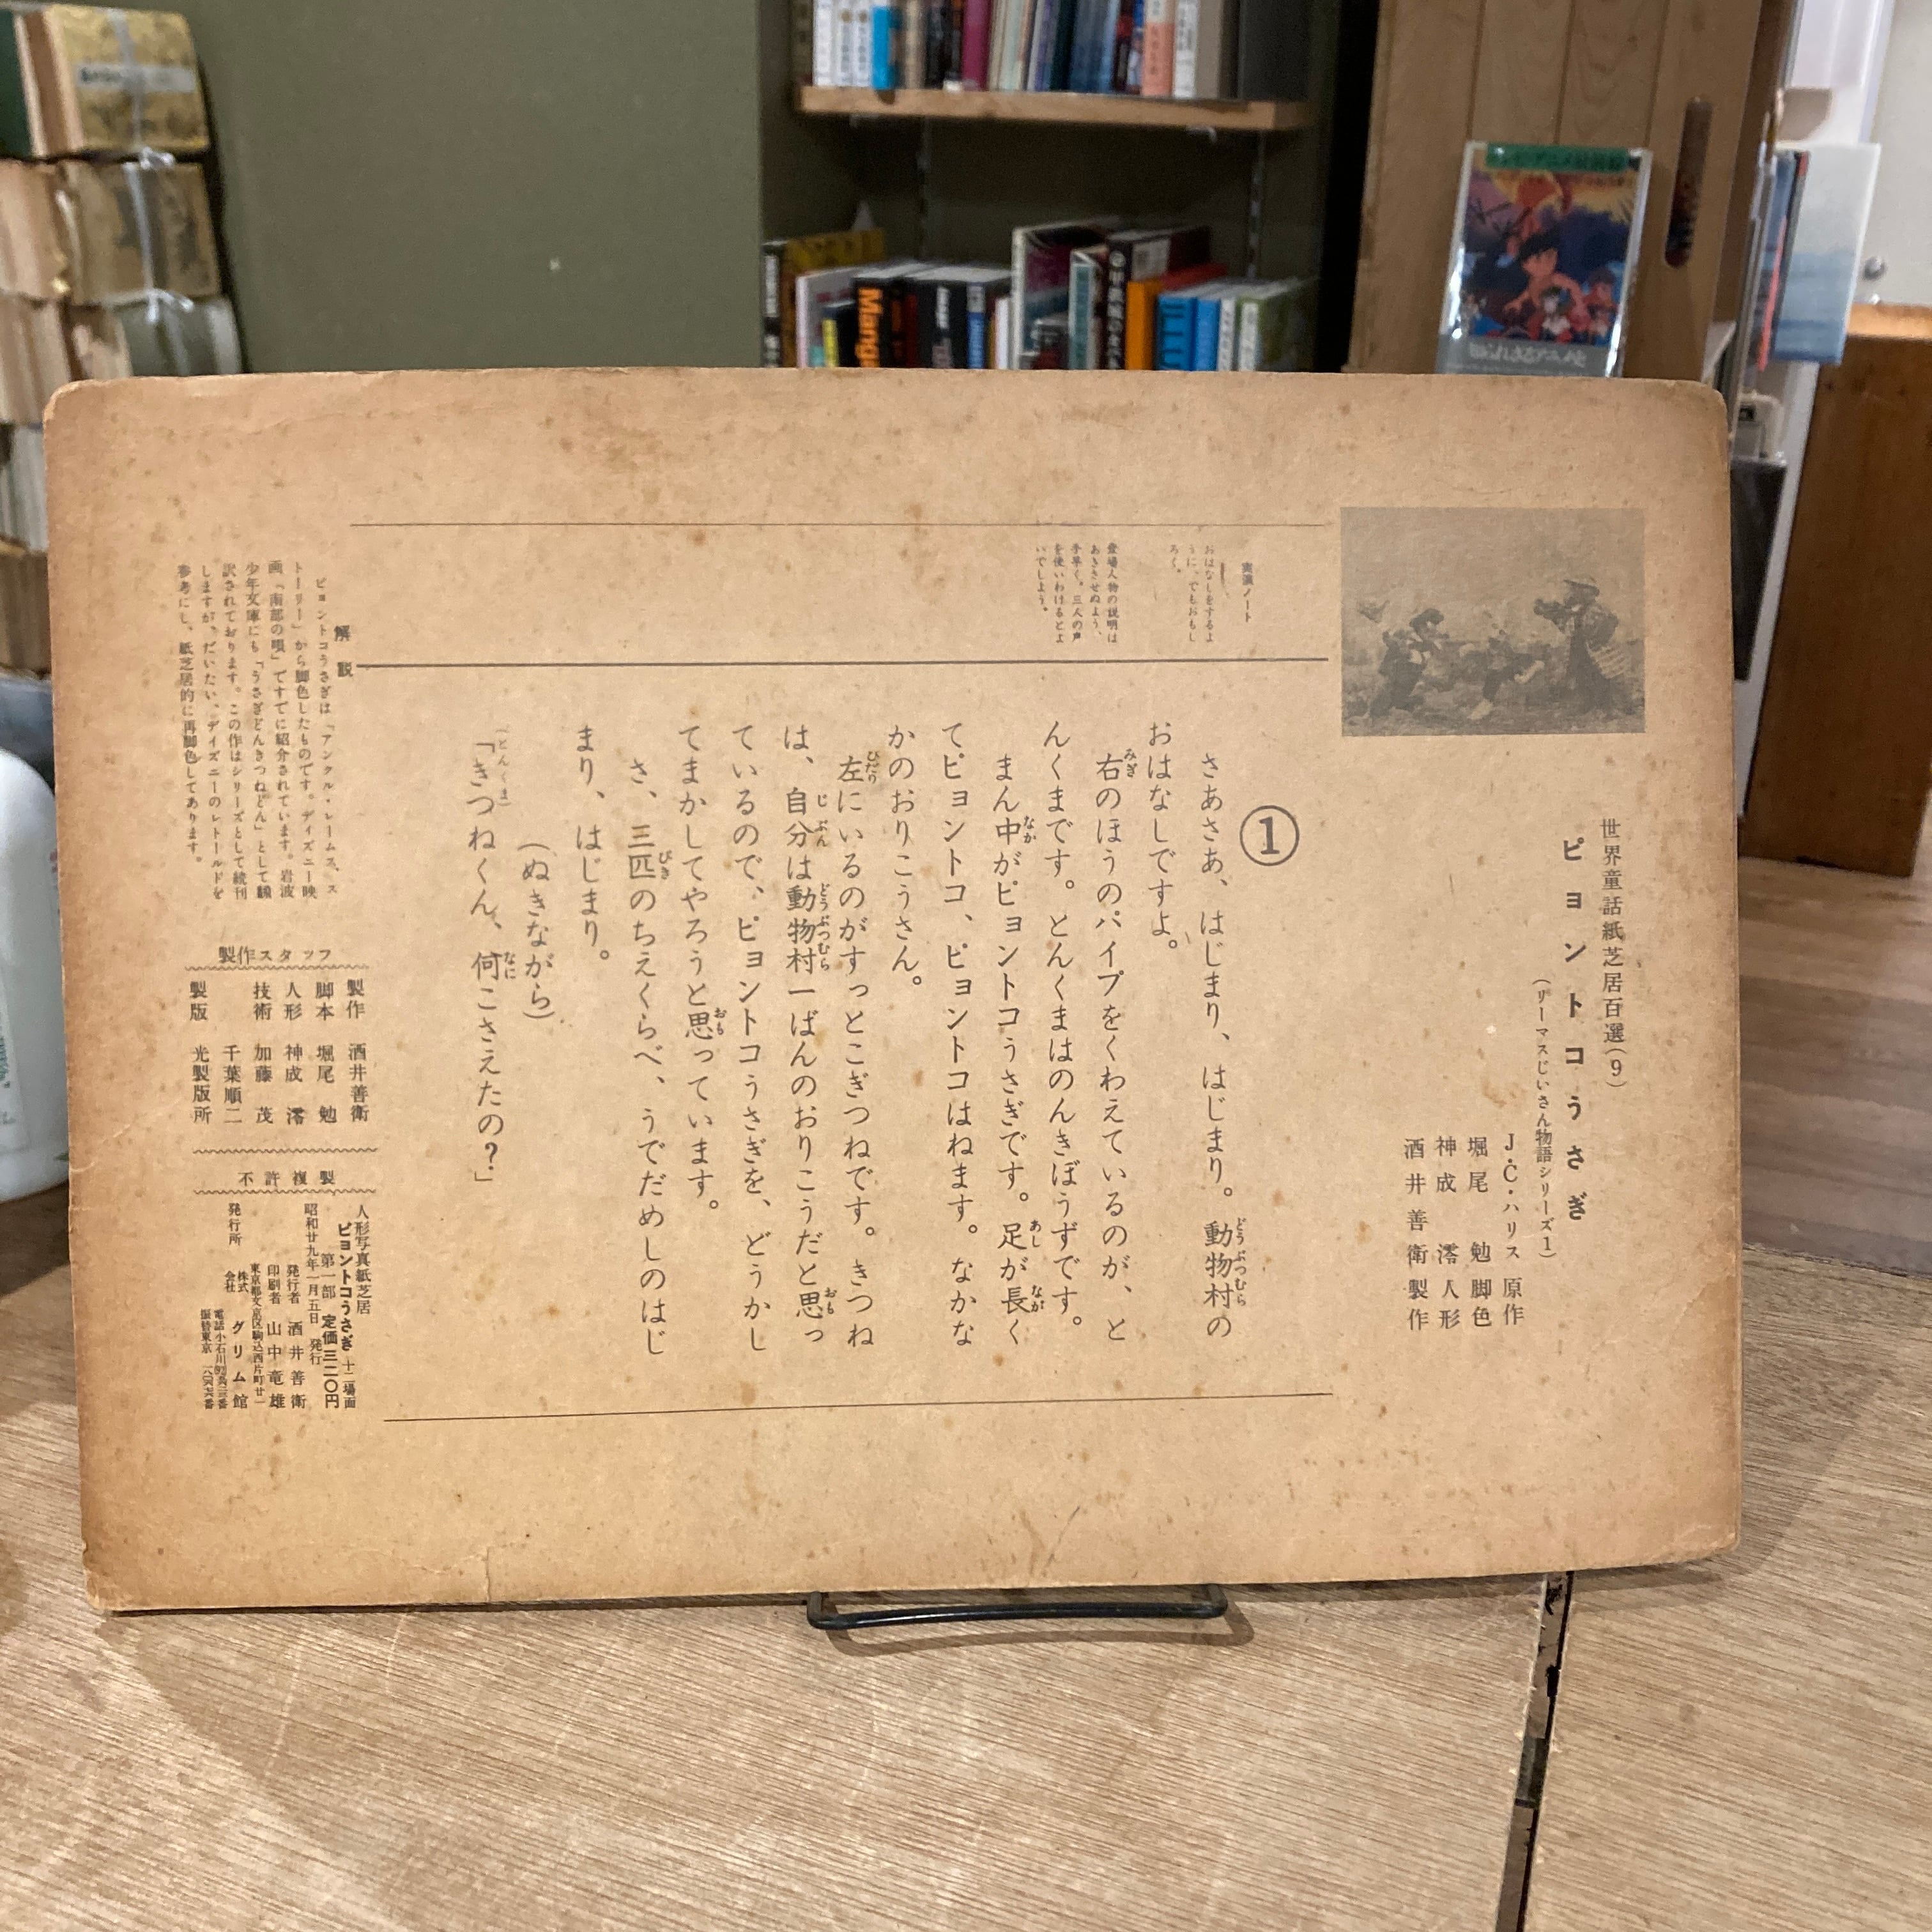 世界童話紙芝居百選(9)
ピョントコうさぎ
(リーマスじいさん物語シリーズ1)
J・C・ハリス 原作
堀尾 勉 脚色
神成 澪 人形
酒井善衛 製作
実演ノート
おはなしをするよ
うに。でもおもし
ろく。
登場人物の説明は
あきさせぬよう、
手早く。三人の声
を使いわけるとよ
いでしょう。
①
さあさあ、はじまり、はじまり。動物村の
おはなしですよ。
右のほうのパイプをくわえているのが、と
んくまです。とんくまはのんきぼうずです。
まん中がピョントコうさぎです。足が長く
てピョントコ、ピョントコはねます。なかな
かのおりこうさん。
左にいるのがすっとこぎつねです。きつね
は、自分は動物村一ばんのおりこうだと思っ
ているので、ピョントコうさぎを、どうかし
てまかしてやろうと思っています。
さ、三匹のちえくらべ、うでだめしのはじ
まり、はじまり。
(ぬきながら)
(とんくま)
「きつねくん、何こさえたの?」
解説
ピョントコうさぎは「アンクル・レームス、ス
トーリー」から脚色したものです。デイズニー映
画「南部の唄」ですでに紹介されています。岩波
少年文庫にも「うさぎどんきつねどん」として飜
訳されております。この作はシリーズとして続刊
しますが、だいたい、デイズニーのレトールドを
参考にし、紙芝居的に再脚色してあります。
製作スタッフ
製作 酒井善衛
脚本 堀尾 勉
人形 神成 澪
技術 加藤 茂
千葉順二
製版 光製版所
不許複製
人形写真紙芝居
ピョントコうさぎ 十二場面
第一部 定価三二〇円
昭和廿九年一月五日 発行
発行者 酒井善衛
印刷者 山中竜雄
東京都文京区駒込西片町廿一
発行所 株式会社 グリム館
電話小石川
振替東京
Mang